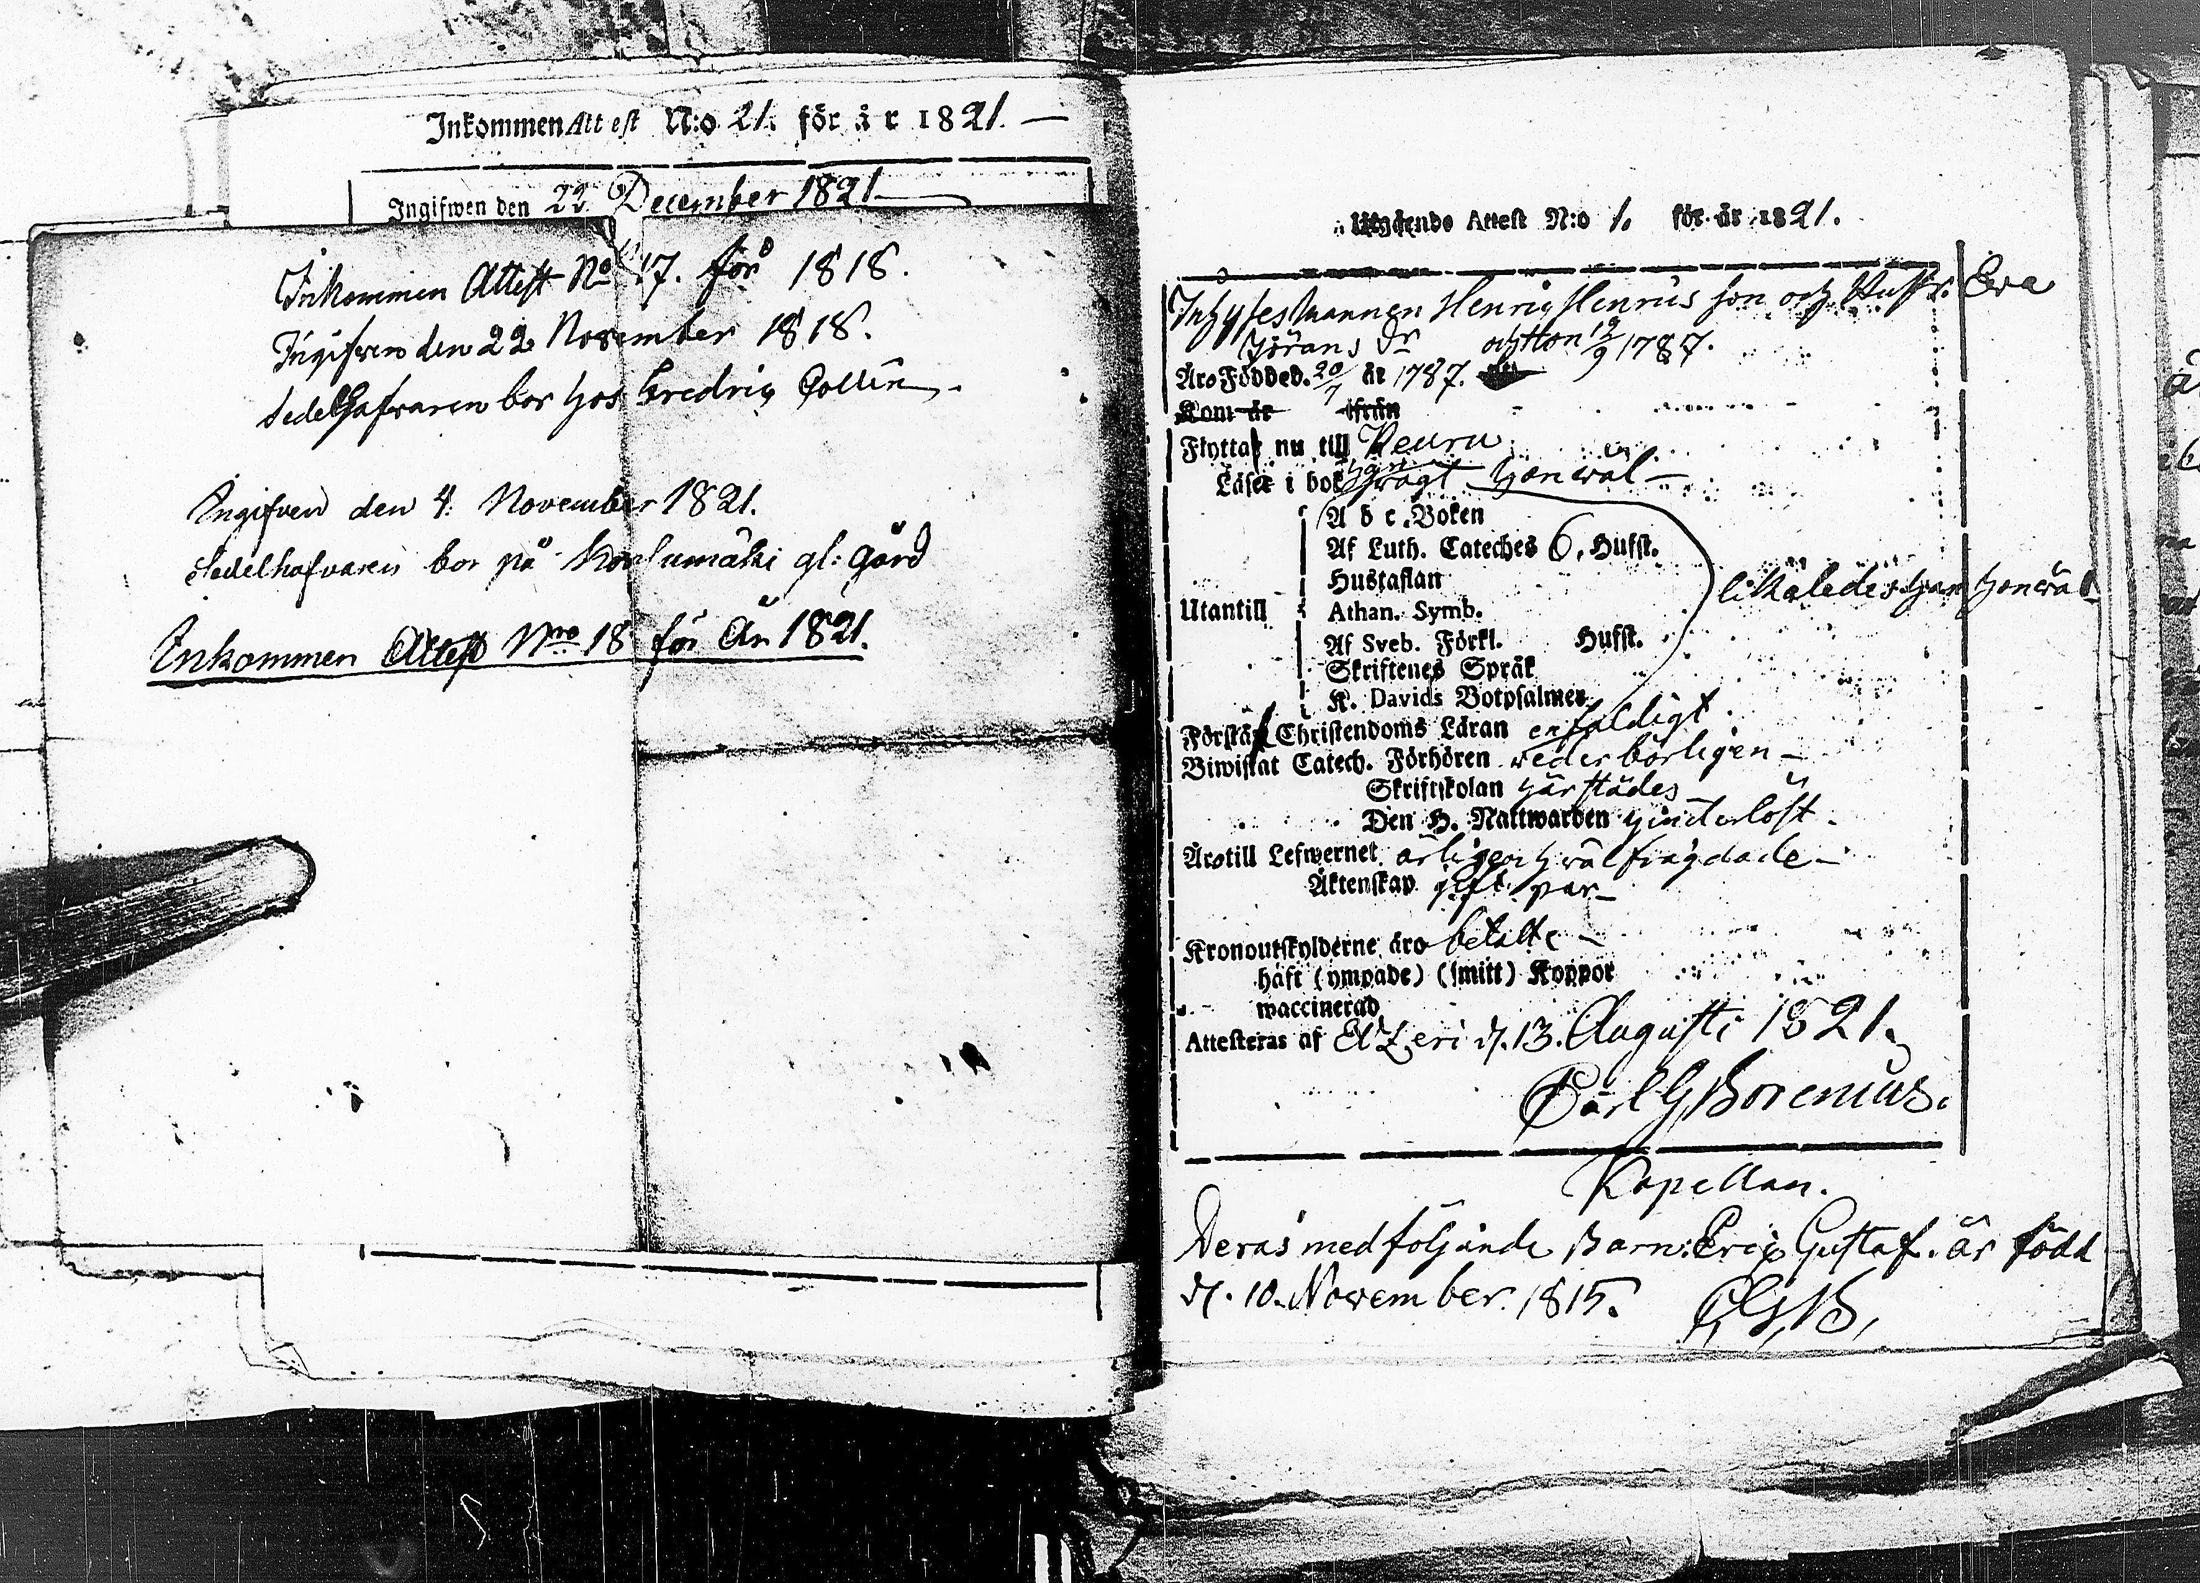 Inkommen Attest N:o 21. för år 1821.
Ingifwen den 22. December 1821
Inkommen Attest No 17. för 1818.
Ingifven den 22 November 1818.
Sedelhafvaren bor hos Fredric Collin
Ingifven den 4. November 1821.
Sedelhafvaren bor på gl: gård
Inkommen Attest Nro 18 för År 1821.
Utgående Attest N:o 1. för år 1821.
Inhyses mannen Henric Henrics son och Hustr. Eva
Jörans dr och Hon 12/9 1787.
Äro Födde d. 20/7 år 1787.
Kom år ifrån
Flytta nu till Keuru
Läser i bok han swagt hon wäl
A b c. Boken
Af Luth. Cateches 6, Hufst.
Hustaflan
likaledes han hon wäl
Utantill Athan. Symb.
Af Sveb. Förkl. Hufst.
Skriftenes Språk
K. Davids Botpsalmer
Förstå Christendoms Läran enfaldigt.
Biwistat Catech. Förhören wederbörligen
Skriftskolan härstädes
Den H. Nattwarden hinderlöst.
Äro till Lefwernet ärlige och wälfrägdade
Äktenskap gift par
Kronoutskylderne äro betalte
haft (ympade) (smitt) Koppor
waccinerad
Attesteras af Etzeri d. 13. Augusti 1821.
Carl G Borenius.
Kapellan.
Deras medföljande Barn: Eric Gustaf. är född
d. 10. November. 1815. C, G, B,